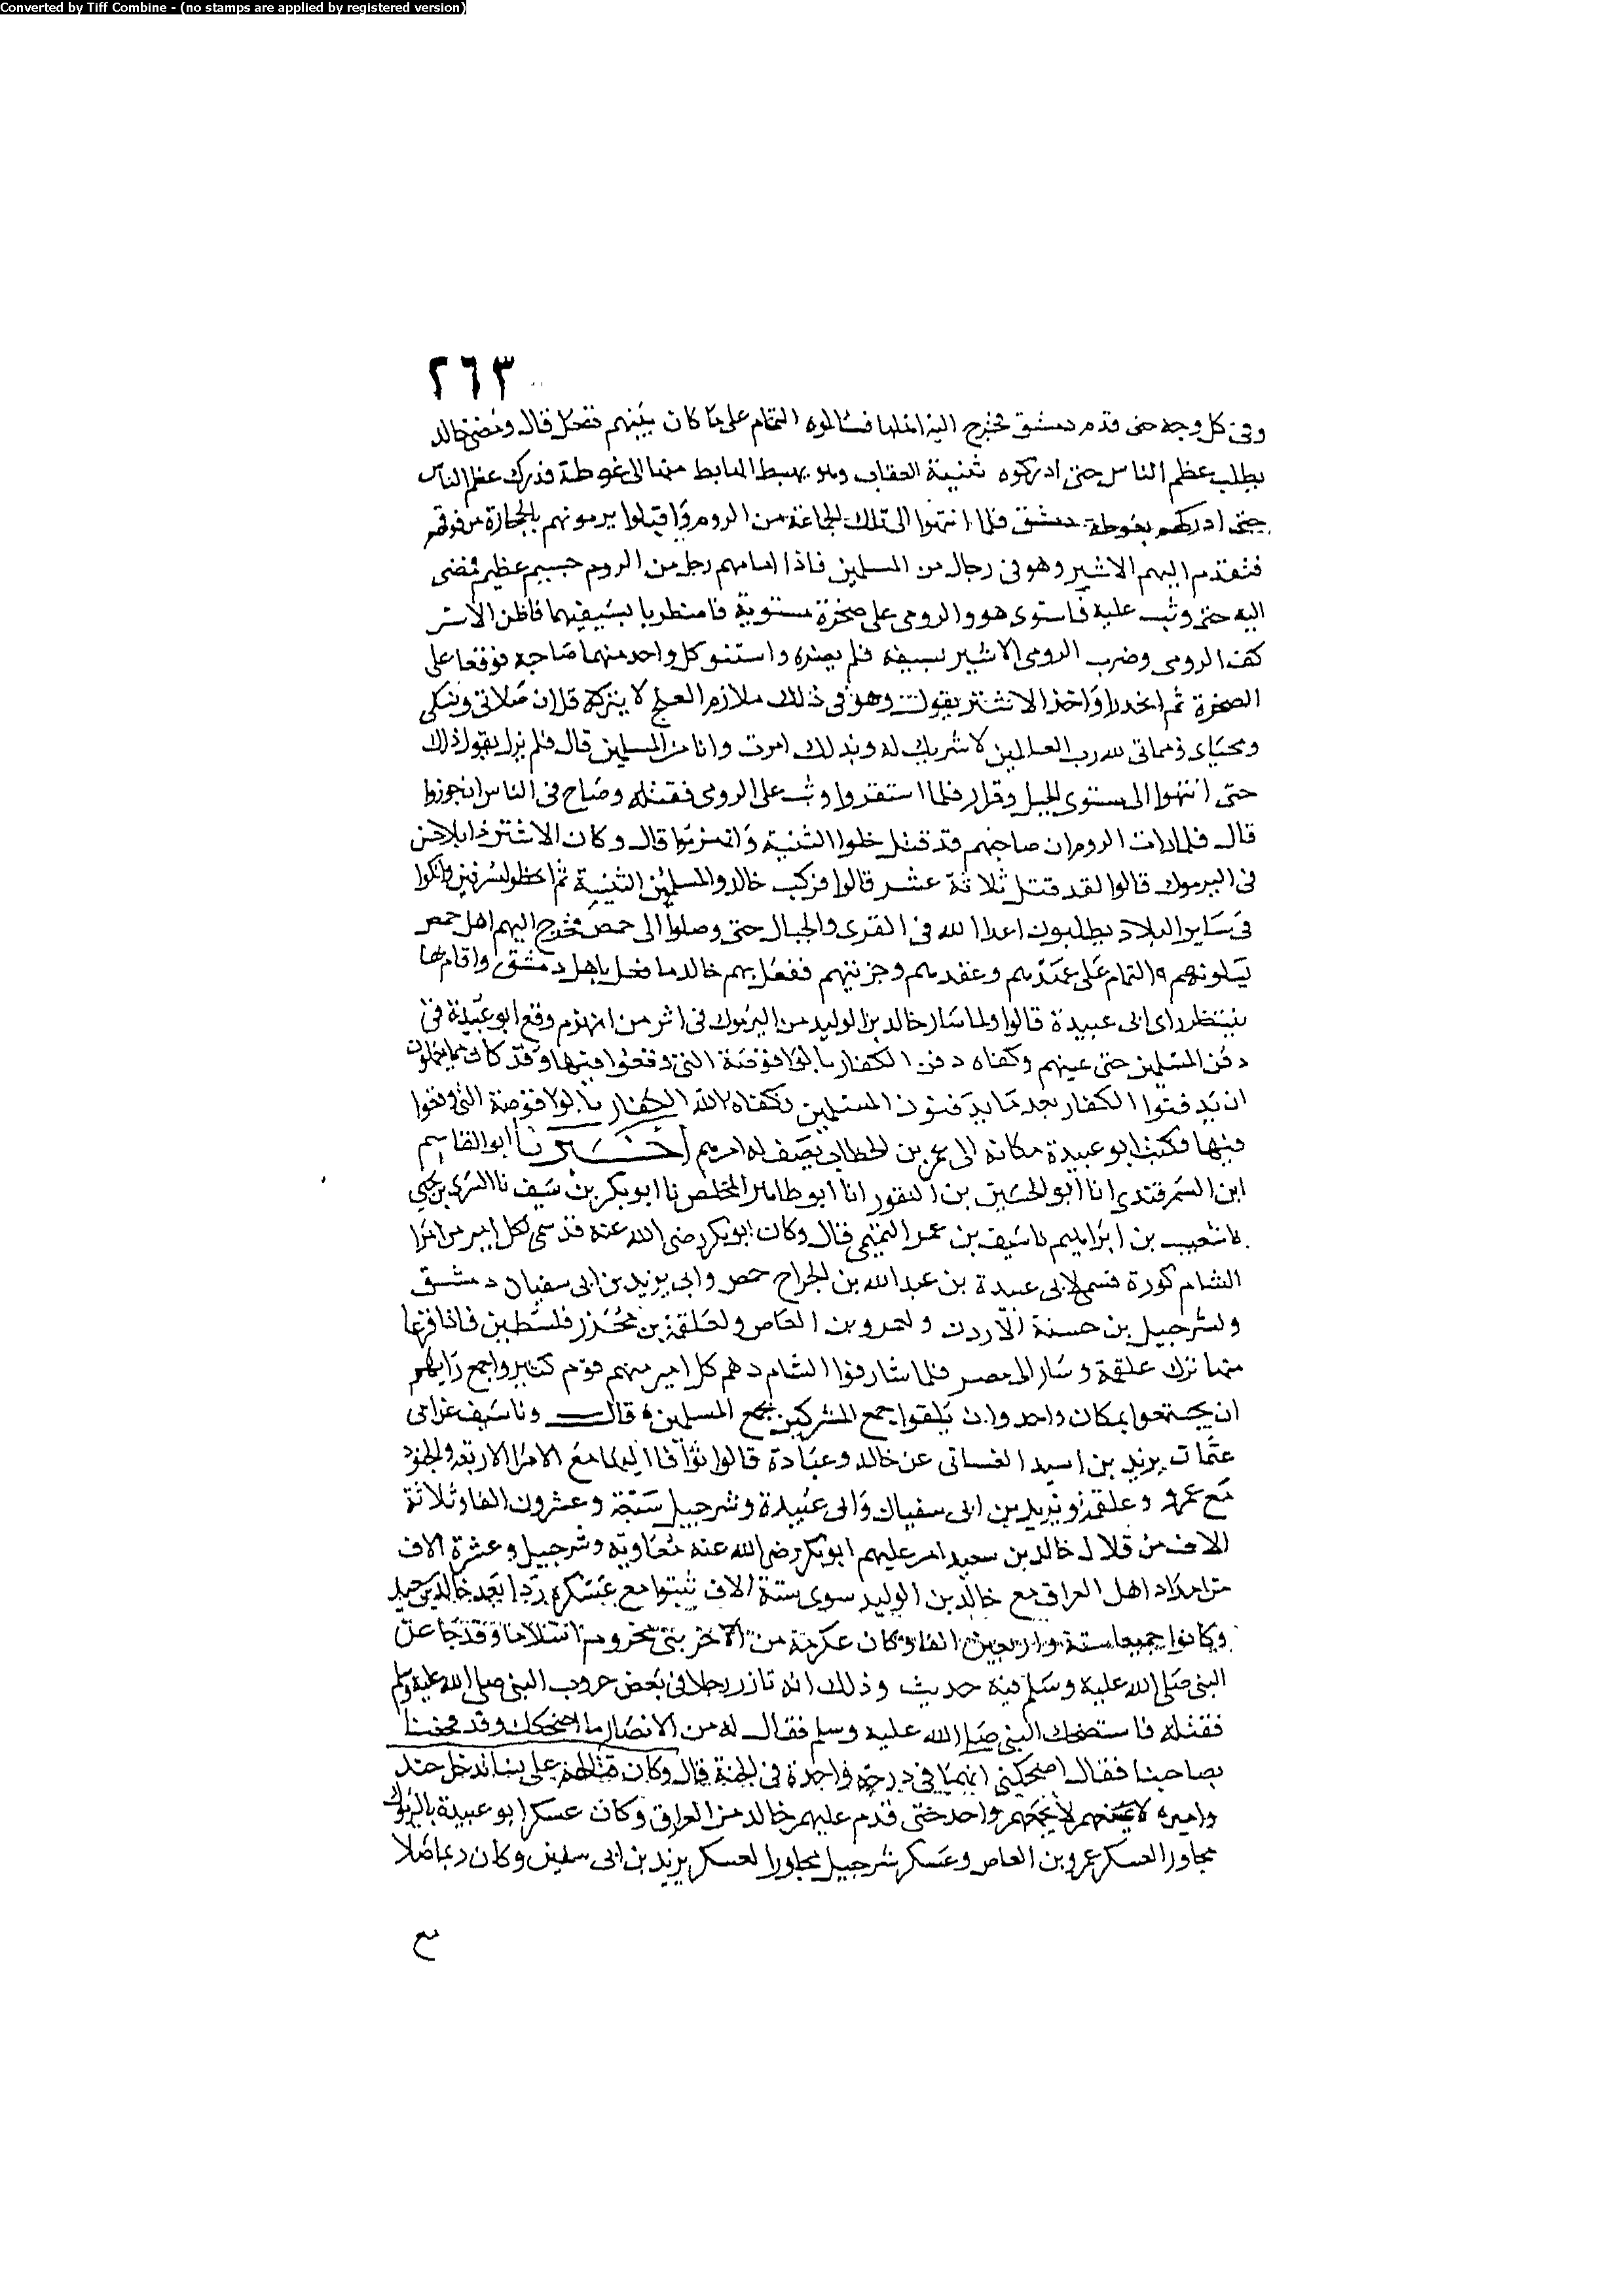 Converted by Tiff Combine - (no stamps are applied by registered version)
٢٦٣
وفى كل وجه حتى قدم دمشق فخرج اليه اهلها فسالوه التمام على ما كان بينهم ففعل قال ومضى خالد
يطلب عظم الناس حتى ادركوه ثنية العقاب وهو يهبط الهابط منها الى غوطة فدرك عظم الناس
حتى ادركهم بغوطة دمشق فلما انتهوا الى تلك الجماعة من الروم واقبلوا يرمونهم بالحجارة من فوقهم
فتقدم اليهم الاشتر وهو فى رجال من المسلمين فاذا امامهم رجل من الروم جسيم عظيم فمضى
اليه حتى وثب عليه فاستوى هو والرومى على صخرة مستوية فاضطربا بسيفيهما فاطن الاشتر
كف الرومى وضرب الرومى الاشتر بسيفه فلم يضره واعتنق كل واحد منهما صاحبه فوقعا على
الصخرة ثم انحدرا واخذ الاشتر يقول وهو فى ذلك ملازم العلج لا يتركه قل ان صلاتى ونسكى
ومحياى ومماتى لله رب العالمين لا شريك له وبذلك امرت وانا من المسلمين قال فلم يزل يقول ذلك
حتى انتهوا الى مستوى الجبل وقرار فلما استقروا وثب على الرومى فقتله وصاح فى الناس ان جوزوا
قال فلما رات الروم ان صاحبهم قد قتل خلوا الثنية وانهزموا قال وكان الاشتر ذا بلا حسن
فى اليرموك قالوا لقد قتل ثلاثة عشر قالوا فركب خالد والمسلمين الثنية ثم
فى ساير البلاد يطلبون اعدا الله فى القرى والجبال حتى وصلوا الى حمص فخرج اليهم اهل حمص
يسلونهم التمام على عهدهم وعقدهم وجزيتهم ففعل بهم خالد ما فعل باهل دمشق واقام بها
ينتظر راى ابى عبيدة قالوا ولما سار خالد بن الوليد من اليرموك فى اثر من انهزم وقع ابو عبيدة فى
دفن المسلمين حتى غيبهم وكفاه دفن الكفار بالواقوصة التى وقعوا فيها وقد كان
ان يدفنوا الكفار بعد ما يدفنون المسلمين فكفاه الله الكفار بالواقوصة التى وقعوا
فيها فكتب ابو عبيدة مكانه الى عمر بن الخطاب يصف له امرهم اخبرنا ابو القاسم
ابن السمرقندى انا ابو الحسين بن النقور انا ابو طاهر المخلص نا ابو بكر بن سيف نا السرى بن يحيى
نا شعيب بن ابراهيم نا سيف بن عمر التميمى قال وكان ابو بكر رضى الله عنه قد سمى لكل امير من امرا
الشام كورة فسمى لابى عبيدة بن عبد الله بن الجراح حمص وابى يزيد بن ابى سفيان دمشق
ولشرحبيل بن حسنة الاردن ولعمرو بن العاص ولعلقمة بن محزز فلسطين فاذا فرغا
منها ترك علقمة وسار الى مصر فلما شارفوا الشام دهم كل امير منهم قوم كثير واجمع رايهم
ان يجتمعوا بمكان واحد وان يلقوا جمع المشركين بجمع المسلمين قال ونا سيف عن ابى
عثمان يزيد بن اسيد الغسانى عن خالد وعبادة قالوا توافا اليها مع الامرا الاربعة والجنود
مع عمرو وعلقمة ويزيد بن ابى سفيان وابى عبيدة وشرحبيل سبعة وعشرون الفا وثلاثة
الاف من فلال خالد بن سعيد امر عليهم ابو بكر رضى الله عنه معاوية وشرحبيل وعشرة الاف
من امداد اهل العراق مع خالد بن الوليد سوى ستة الاف ثبتوا مع عكرمة ردا بعد خالد بن سعيد
وكانوا جميعا ستة واربعين الفا وكان عكرمة من اخر بنى مخزوم اسلاما وقد جا عن
النبى صلى الله عليه وسلم فيه حديث وذلك انه بارز رجلا فى بعض حروب النبى صلى الله عليه وسلم
فقتله فاستضحك النبى صلى الله عليه وسلم فقال له من الانصار ما اضحكك وقد فجعنا
بصاحبنا فقال اضحكنى انهما فى درجة واحدة فى الجنة قال وكان قتالهم على تساند كل جند
واميره لا يجمعهم واحد حتى قدم عليهم خالد من العراق وكان عسكر ابو عبيدة باليرموك
مجاور العسكر عمرو بن العاص وعسكر شرحبيل مجاورا لعسكر يزيد بن ابى سفين وكان ربما صلا
مع